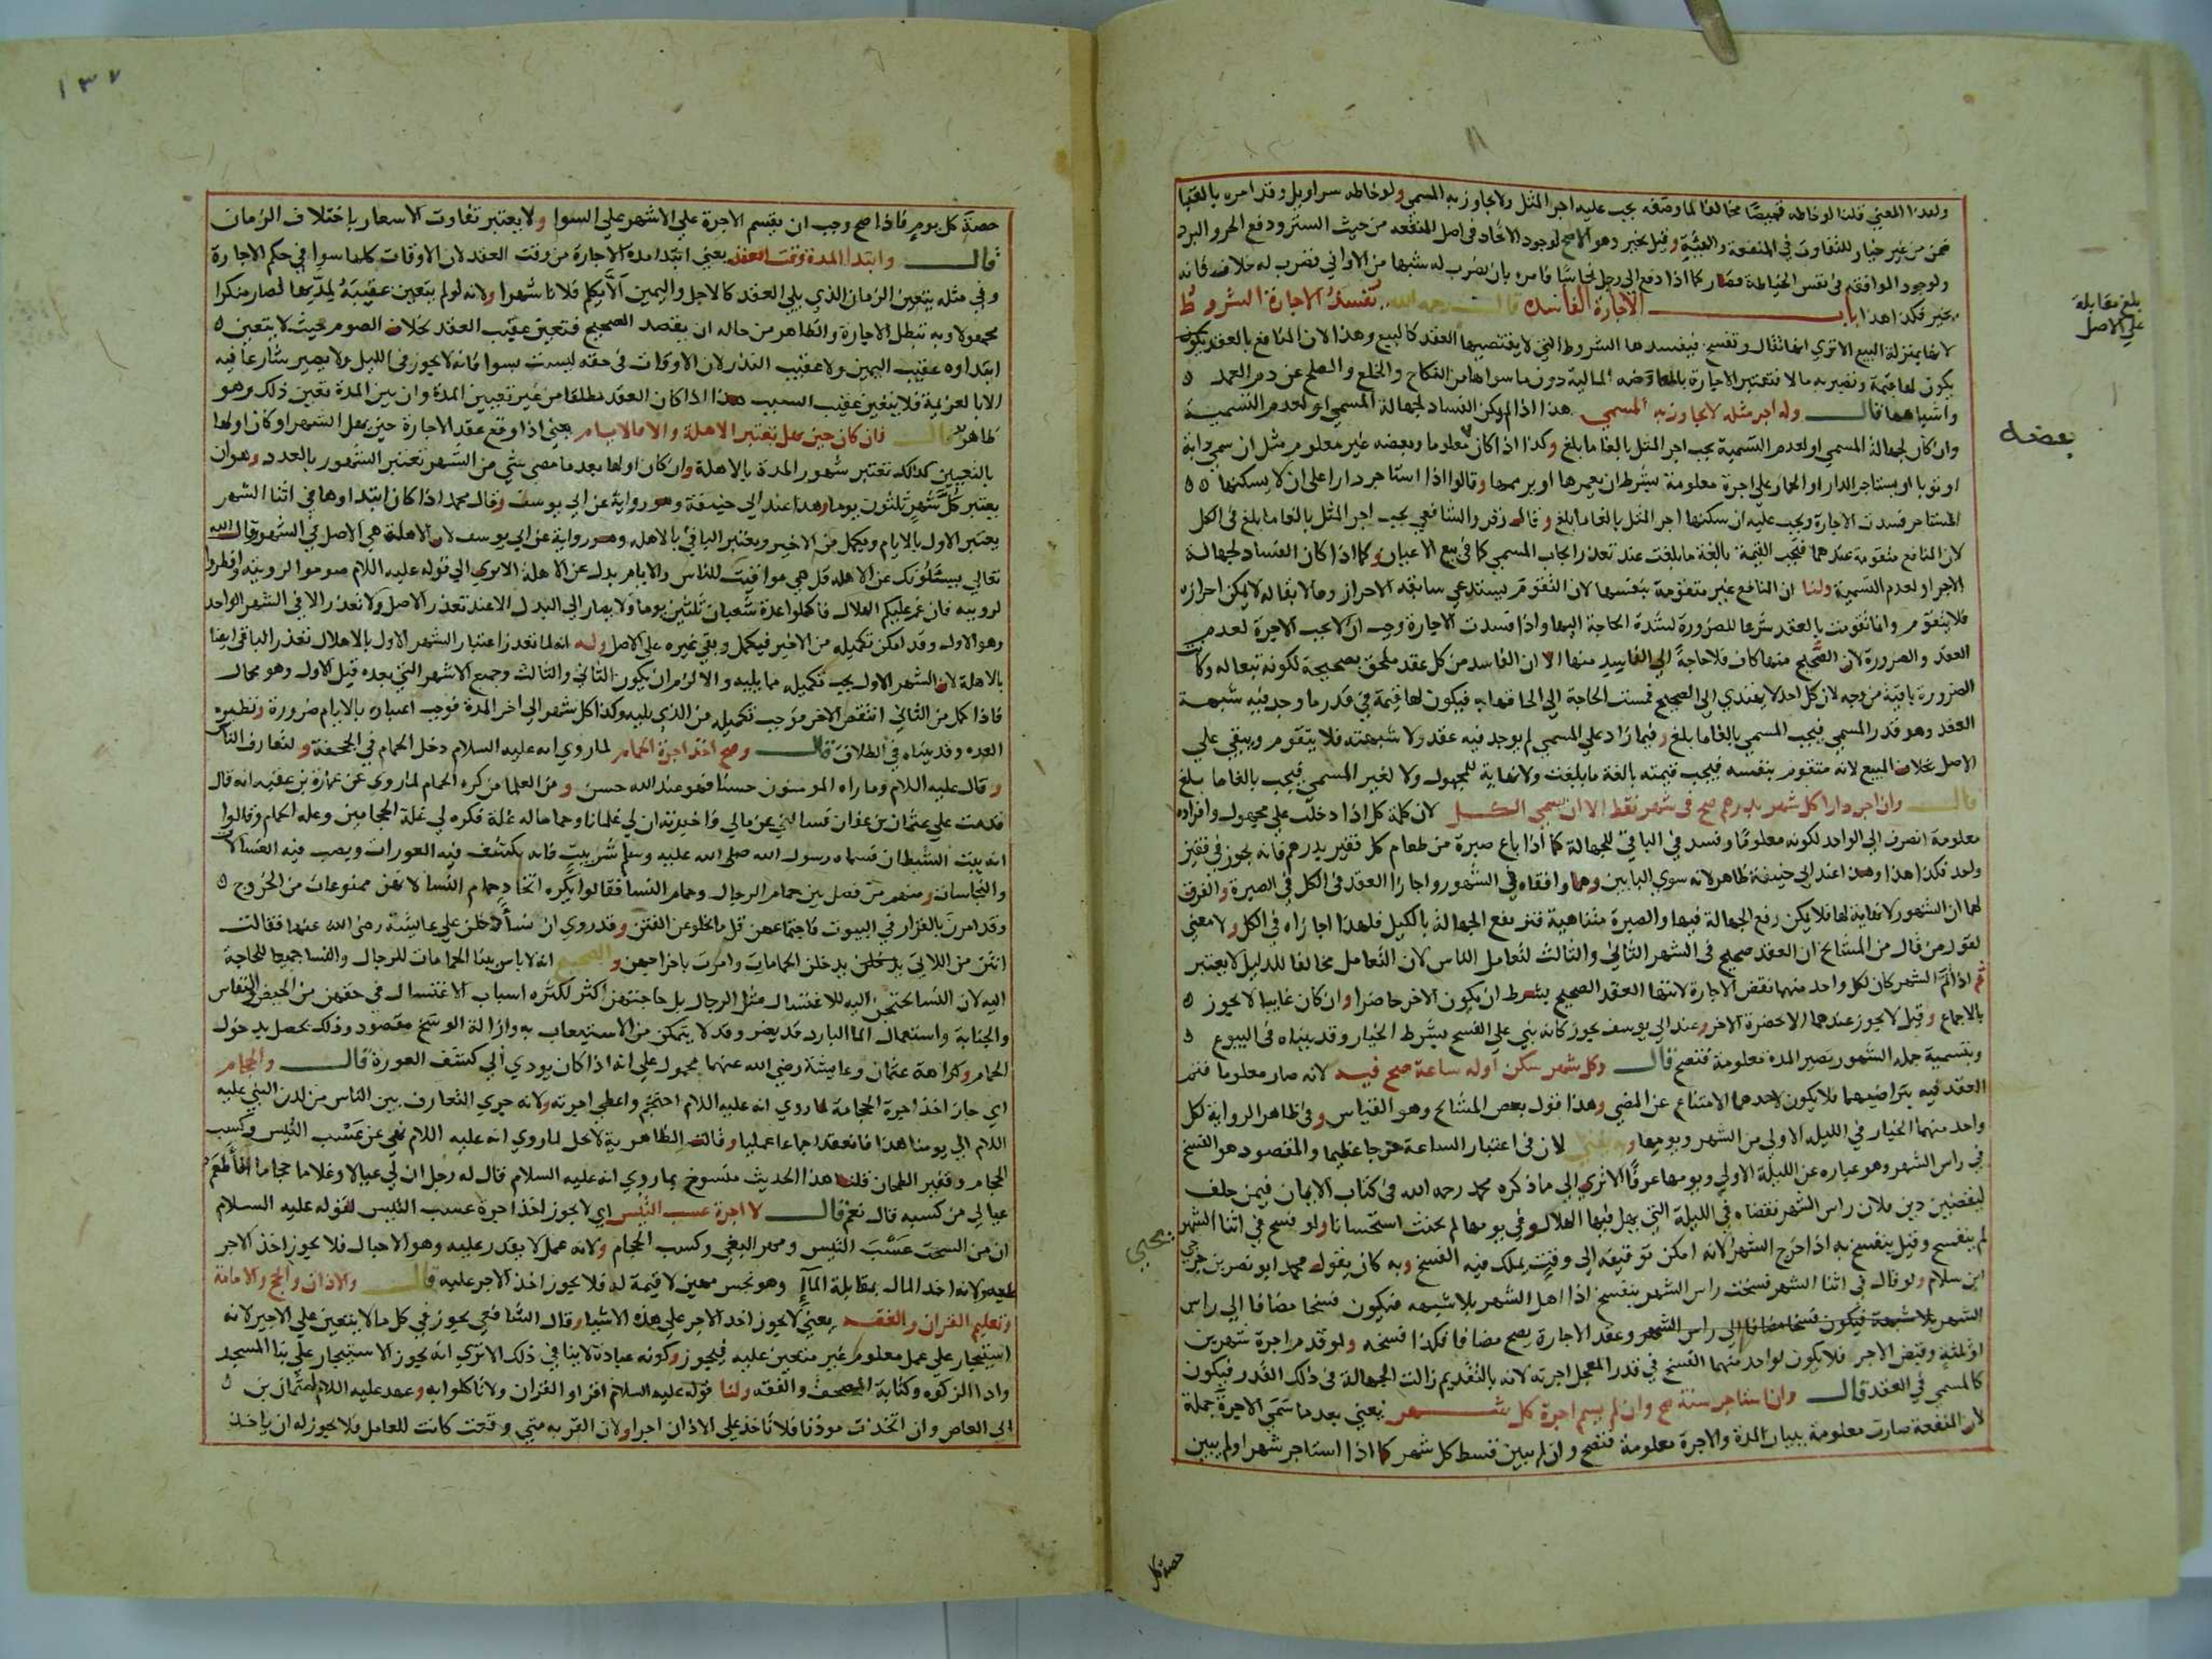 ولهذا المعني قلنا لو خاطه قميصًا مخالفا لما وصفه يجب عليه اجر المثل ولا يجاوز به المسمي ولو خاطه سراويل وقد امره بالقبا
ضمن من غير خيار للتفاوت في المنفعة والهيئة وقيل يخير وهو الاصح لوجود الاتحاد في اصل المنفعه من حيث الستر ودفع الحر والبرد
ولوجود الموافقه في نفس الخياطة فصار كما اذا دفع الي رجل نحاسًا فامره بان يضرب له شبها من الاواني فضرب له خلافه فانه
يخير فكذا هذا باب الاجارة الفاسده قال رحمه الله يفسد الاجارة الشروط
لانها بمنزلة البيع الا تري انها تقال وتفسخ فيفسدها الشروط التي لا يقتضيها العقد كالبيع وهذا لان المنافع بالعقد يكون
يكون لها قيمة وتصير به مالا فتعتبر الاجارة بالمعاوضه المالية دون ما سواها من النكاح والخلع والصلح عن دم العمد
واشباهها قال وله اجر مثله لا يجاوز به المسمي هذا اذا لم يكن الفساد لجهالة المسمي او لعدم التسمية
وان كان لجهالة المسمي او لعدم التسمية يجب اجر المثل بالغا ما بلغ وكذا اذا كان معلوما وبعضه غير معلوم مثل ان سمي دابة
او ثوبا او يستاجر الدار او الحمار علي اجرة معلومة بشرط ان يعمرها او يرمها وقالوا اذا استاجر دارا علي ان لا يسكنها
المستاجر فسدت الاجارة ويجب عليه ان سكنها اجر المثل بالغا ما بلغ وقال زفر والشافعي يجب اجر المثل بالغا ما بلغ في الكل
لان المنافع متقومة عندهما فتجب القيمة بالغة ما بلغت عند تعذر ايجاب المسمي كما في بيع الاعيان وكما اذا كان الفساد لجهالة
الاجر او لعدم التسمية ولنا ان المنافع غير متقومة بنفسها لان التقوم يستدعي سابقه الاحراز وما لا بقا له لا يمكن احرازه
فلا يتقوم وانما تقومت بالعقد شرعا للضرورة لشدة الحاجة اليها واذا فسدت الاجارة وجب ان لا يجب الاجرة لعدم
العقد والضرورة لان الصحيح منها كاف فلا حاجة الي الفاسد منها الا ان الفاسد من كل عقد ملحق بصحيحة لكونه تبعا له وكانت
الضرورة باقية من وجه لان كل احد لا يهتدي الي الصحيح فمست الحاجة الي الحاقها به فيكون لها قيمة في قدر ما وجد فيه شبهة
العقد وهو قدر المسمي فيجب المسمي بالغا ما بلغ وفيما زاد علي المسمي لم يوجد فيه عقد ولا شبهته فلا يتقوم ويبقي علي
الاصل بخلاف المبيع لانه متقوم بنفسه فيجب قيمته بالغة ما بلغت ولا نهاية للمجهول ولا لغير المسمي فيجب بالغا ما بلغ
قال وان اجر دارا كل شهر بدرهم صح في شهر فقط الا ان يسمي الكل لان كلمة كل اذا دخلت علي مجهول وافراده
معلومة انصرف الي الواحد لكونه معلومًا وفسد في الباقي للجهالة كما اذا باع صبرة من طعام كل قفيز بدرهم فانه يجوز في قفيز
واحد فكذا هذا وهذا عند ابي حنيفة ظاهر لانه سوي البابين وهما وافقاه في الشهور واجازا العقد في الكل في الصبرة والفرق
لهما ان الشهور لا نهاية لها فلا يمكن رفع الجهالة فيها والصبرة متناهية فترتفع الجهالة بالكيل فلهذا اجازاه في الكل ولا معني
لقول من قال من المشائخ ان العقد صحيح في الشهر الثاني والثالث لتعامل الناس لان التعامل مخالفا للدليل لا يعتبر
ثم اذا تم الشهر كان لكل واحد منهما نقض الاجارة لانتها العقد الصحيح بشرط ان يكون الاخر حاضرا وان كان غايبا لا يجوز
بالاجماع وقيل لا يجوز عندهما الا بحضرة الاخر وعند ابي يوسف يجوز كانه بني علي الفسخ بشرط الخيار وقد بيناه في البيوع
وبتسمية جمله الشهور يصير المدة معلومة فتصح قال وكل شهر سكن اوله ساعة صح فيه لانه صار معلوما فتم
العقد فيه بتراضيهما فلا يكون لاحدهما الامتناع عن المضي وهذا قول بعض المشائخ وهو القياس وفي ظاهر الرواية لكل
واحد منهما الخيار في الليله الاولي من الشهر ويومها وبه يفتي لان في اعتبار الساعة حرجا عظيما والمقصود هو الفسخ
في راس الشهر وهو عباره عن الليلة الاولي ويومها عرفًا الا تري الي ما ذكره محمد رحمه الله في كتاب الايمان فيمن حلف
ليقضين دين فلان راس الشهر فقضاه في الليلة التي يهل فيها الهلال وفي يومها لم يحنث استحسانا ولو فسخ في اثنا الشهر
لم ينفسخ وقيل ينفسخ به اذا خرج الشهر لانه امكن توقيفه الي وقت يملك فيه الفسخ وبه كان يقول محمد ابو نصر بن
ابن سلام ولو قال في اثنا الشهر فسخت راس الشهر ينفسخ اذا اهل الشهر بلا شبهه فيكون فسخا مضافا الي راس
الشهر بلا شبهة فيكون فسخا مضافا الي راس الشهر وعقد الاجارة يصح مضافا فكذا فسخه ولو قدم اجرة شهرين
او ثلثة وقبض الاجر فلا يكون لواحد منهما الفسخ في قدر المعجل اجرته لانه بالتقديم زالت الجهالة في ذلك القدر فيكون
كالمسمي في العقد قال وان استاجر سنة صح وان لم يسم اجرة كل شهر يعني بعد ما سَمَي الاجرة جملة
لان المنفعة صارت معلومة ببيان المدة والاجرة معلومة فتصح وان لم يبين قسط كل شهر كما اذا استاجر شهرا ولم يبين
بلغ مقابلة
علي الاصل
بعضه
يحيي
حصة كل
١٣٧
حصة كل يوم فاذا صح وجب ان يقسم الاجرة علي الاشهر علي السوا ولا يعتبر تفاوت الاسعار باختلاف الزمان
قال وابتدا المدة وقت العقد يعني ابتدا مدة الاجارة من وقت العقد لان الاوقات كلها سوا في حكم الاجارة
وفي مثله يتعين الزمان الذي يلي العقد كالاجل واليمين الا يكلم فلانا شهرا ولانه لو لم يتعين عقيبة لمدتها لصار منكرا
مجهولا وبه تبطل الاجارة والظاهر من حاله ان يقصد الصحيح فتعين عقيب العقد بخلاف الصوم حيث لا يتعين
ابتداوه عقيب اليمين ولا عقيب النذر لان الاوقات في حقه ليست بسوا فانه لا يجوز في الليل ولا يصير شارعا فيه
الا بالعزيمة فلا يتعين عقيب السبب هذا اذا كان العقد مطلقا من غير تعيين المدة وان بين المدة تعين ذلك وهو
ظاهر قال فان كان حين يهل يعتبر الاهلة والا فالايام يعني اذا وقع عقد الاجارة حين يهل الشهر او كان اولها
بالتعيين كذلك تعتبر شهور المدة بالاهلة وان كان اولها بعد ما مضي شي من الشهر تعتبر الشهور بالعدد وهو ان
يعتبر كل شهر ثلثون يوما وهذا عند ابي حنيفة وهو رواية عن ابي يوسف وقال محمد اذا كان ابتداوها في اثنا الشهر
يعتبر الاول بالايام ويكمل من الاخير ويعتبر الباقي بالاهله وهو رواية عن ابي يوسف لان الاهلة هي الاصل في الشهور قال الله
تعالي يسئلونك عن الاهله قل هي مواقيت للناس والايام بدل عن الاهلة الا تري الي قوله عليه اللام صوموا لرويته وافطروا
لرويته فان غم عليكم الهلال فاكملوا عدة شعبان ثلثين يوما ولا يصار الي البدل الا عند تعذر الاصل ولا تعذر الا في الشهر الواحد
وهو الاول وقد امكن تكميله من الاخير فيكمل وبقي غيره علي الاصل وله انه لما تعذر اعتبار الشهر الاول بالاهلال تعذر الباقي ايضا
بالاهلة لان الشهر الاول يجب تكميله مما يليه والا لزم ان يكون الثاني والثالث وجميع الاشهر التي بعده قبل الاول وهو محال
فاذا كمل من الثاني انتقص الاخر فوجب تكميله من الذي يليه وكذا كل شهر الي اخر المدة فوجب اعتباره بالايام ضرورة ونظيره
العده وقد بيناه في الطلاق قال وصح اخذ اجرة الحمام لما روي انه عليه السلام دخل الحمام في الجحفة ولتعارف الناس
وقال عليه اللام وما راه المومنون حسنا فهو عند الله حسن ومن العلما من كره الحمام لما روي عن عمارة بن عقبه انه قال
قدمت علي عثمان بن عفان فسالني عن مالي فاخبرته ان لي غلمانا وحماما له غلة فكره لي غلة الحجامين وغله الحمام وقالوا
انه بيت الشيطان فسماه رسول الله صلي الله عليه وسلم شر بيت فانه يكشف فيه العورات ويصب فيه الغسالات
والنجاسات ومنهم من فصل بين حمام الرجال وحمام النسا فقالوا يكره اتخاد حمام النسا لانهن ممنوعات من الخروج
وقد امرن بالقرار في البيوت فاجتماعهن قل ما يخلو عن الفتن وقد روي ان نسأ دخلن علي عايشة رضي الله عنها فقالت
انتن من اللاتي يدخلن يدخلن الحمامات وامرت باخراجهن والصحيح انه لا باس ببنا الحمامات للرجال والنسا جميعا للحاجة
اليه لان النسا يحتجن اليه للاغتسال مثل الرجال بل حاجتهن اكثر لكثره اسباب الاغتسال في حقهن من الحيض والنفاس
والجنابة واستعمال الما البارد قد يضر وقد لا يتمكن من الاستيعاب به وازالة الوسخ مقصود وذلك يحصل بدخول
الحمام وكراهة عثمان وعايشة رضي الله عنهما محمول علي انه اذا كان يودي الي كشف العورة قال والحجام
اي جاز اخذ اجرة الحجامة لما روي انه عليه اللام احتجم واعطي اجرته ولانه جري التعارف بين الناس من لدن النبي عليه
اللام الي يومنا هذا فانعقد اجماعا عمليا وقالت الظاهرية لا يحل لما روي انه عليه اللام نهي عن عسب التيس وكسب
الحجام وقفيز الطحان قلنا هذا الحديث منسوخ بما روي انه عليه السلام قال له رجل ان لي عيالا وغلاما حجاما افاطعم
عيالي من كسبه قال نعم قال لا اجرة عسب التيس اي لا يجوز اخذ اجرة عسب التيس لقوله عليه السلام
ان من السحت عسب التيس ومهر البغي وكسب الحجام ولانه عمل لا يقدر عليه وهو الاحبال فلا يجوز اخذ الاجر
عليه ولانه اخذ المال بمقابلة الما وهو نجس مهين لا قيمة له فلا يجوز اخذ الاجر عليه قال والاذان والحج والامامة
وتعليم القران والفقه يعني لا يجوز اخذ الاجر علي هذه الاشيا وقال الشافعي يجوز في كل ما لا يتعين علي الاجير لانه
استيجار علي عمل معلوم غير متعين عليه فيجوز وكونه عبادة لا ينافي ذلك الا تري انه يجوز الاستيجار علي بنا المسجد
وادا الزكوه وكتابة المصحف والفقه ولنا قوله عليه السلام اقراو القران ولا تاكلوا به وعهد عليه اللام لعثمان بن
ابي العاص وان اتخذت موذنا فلا تاخذ علي الاذان اجرا ولان القربه متي وقعت كانت للعامل فلا يجوز له ان ياخذ